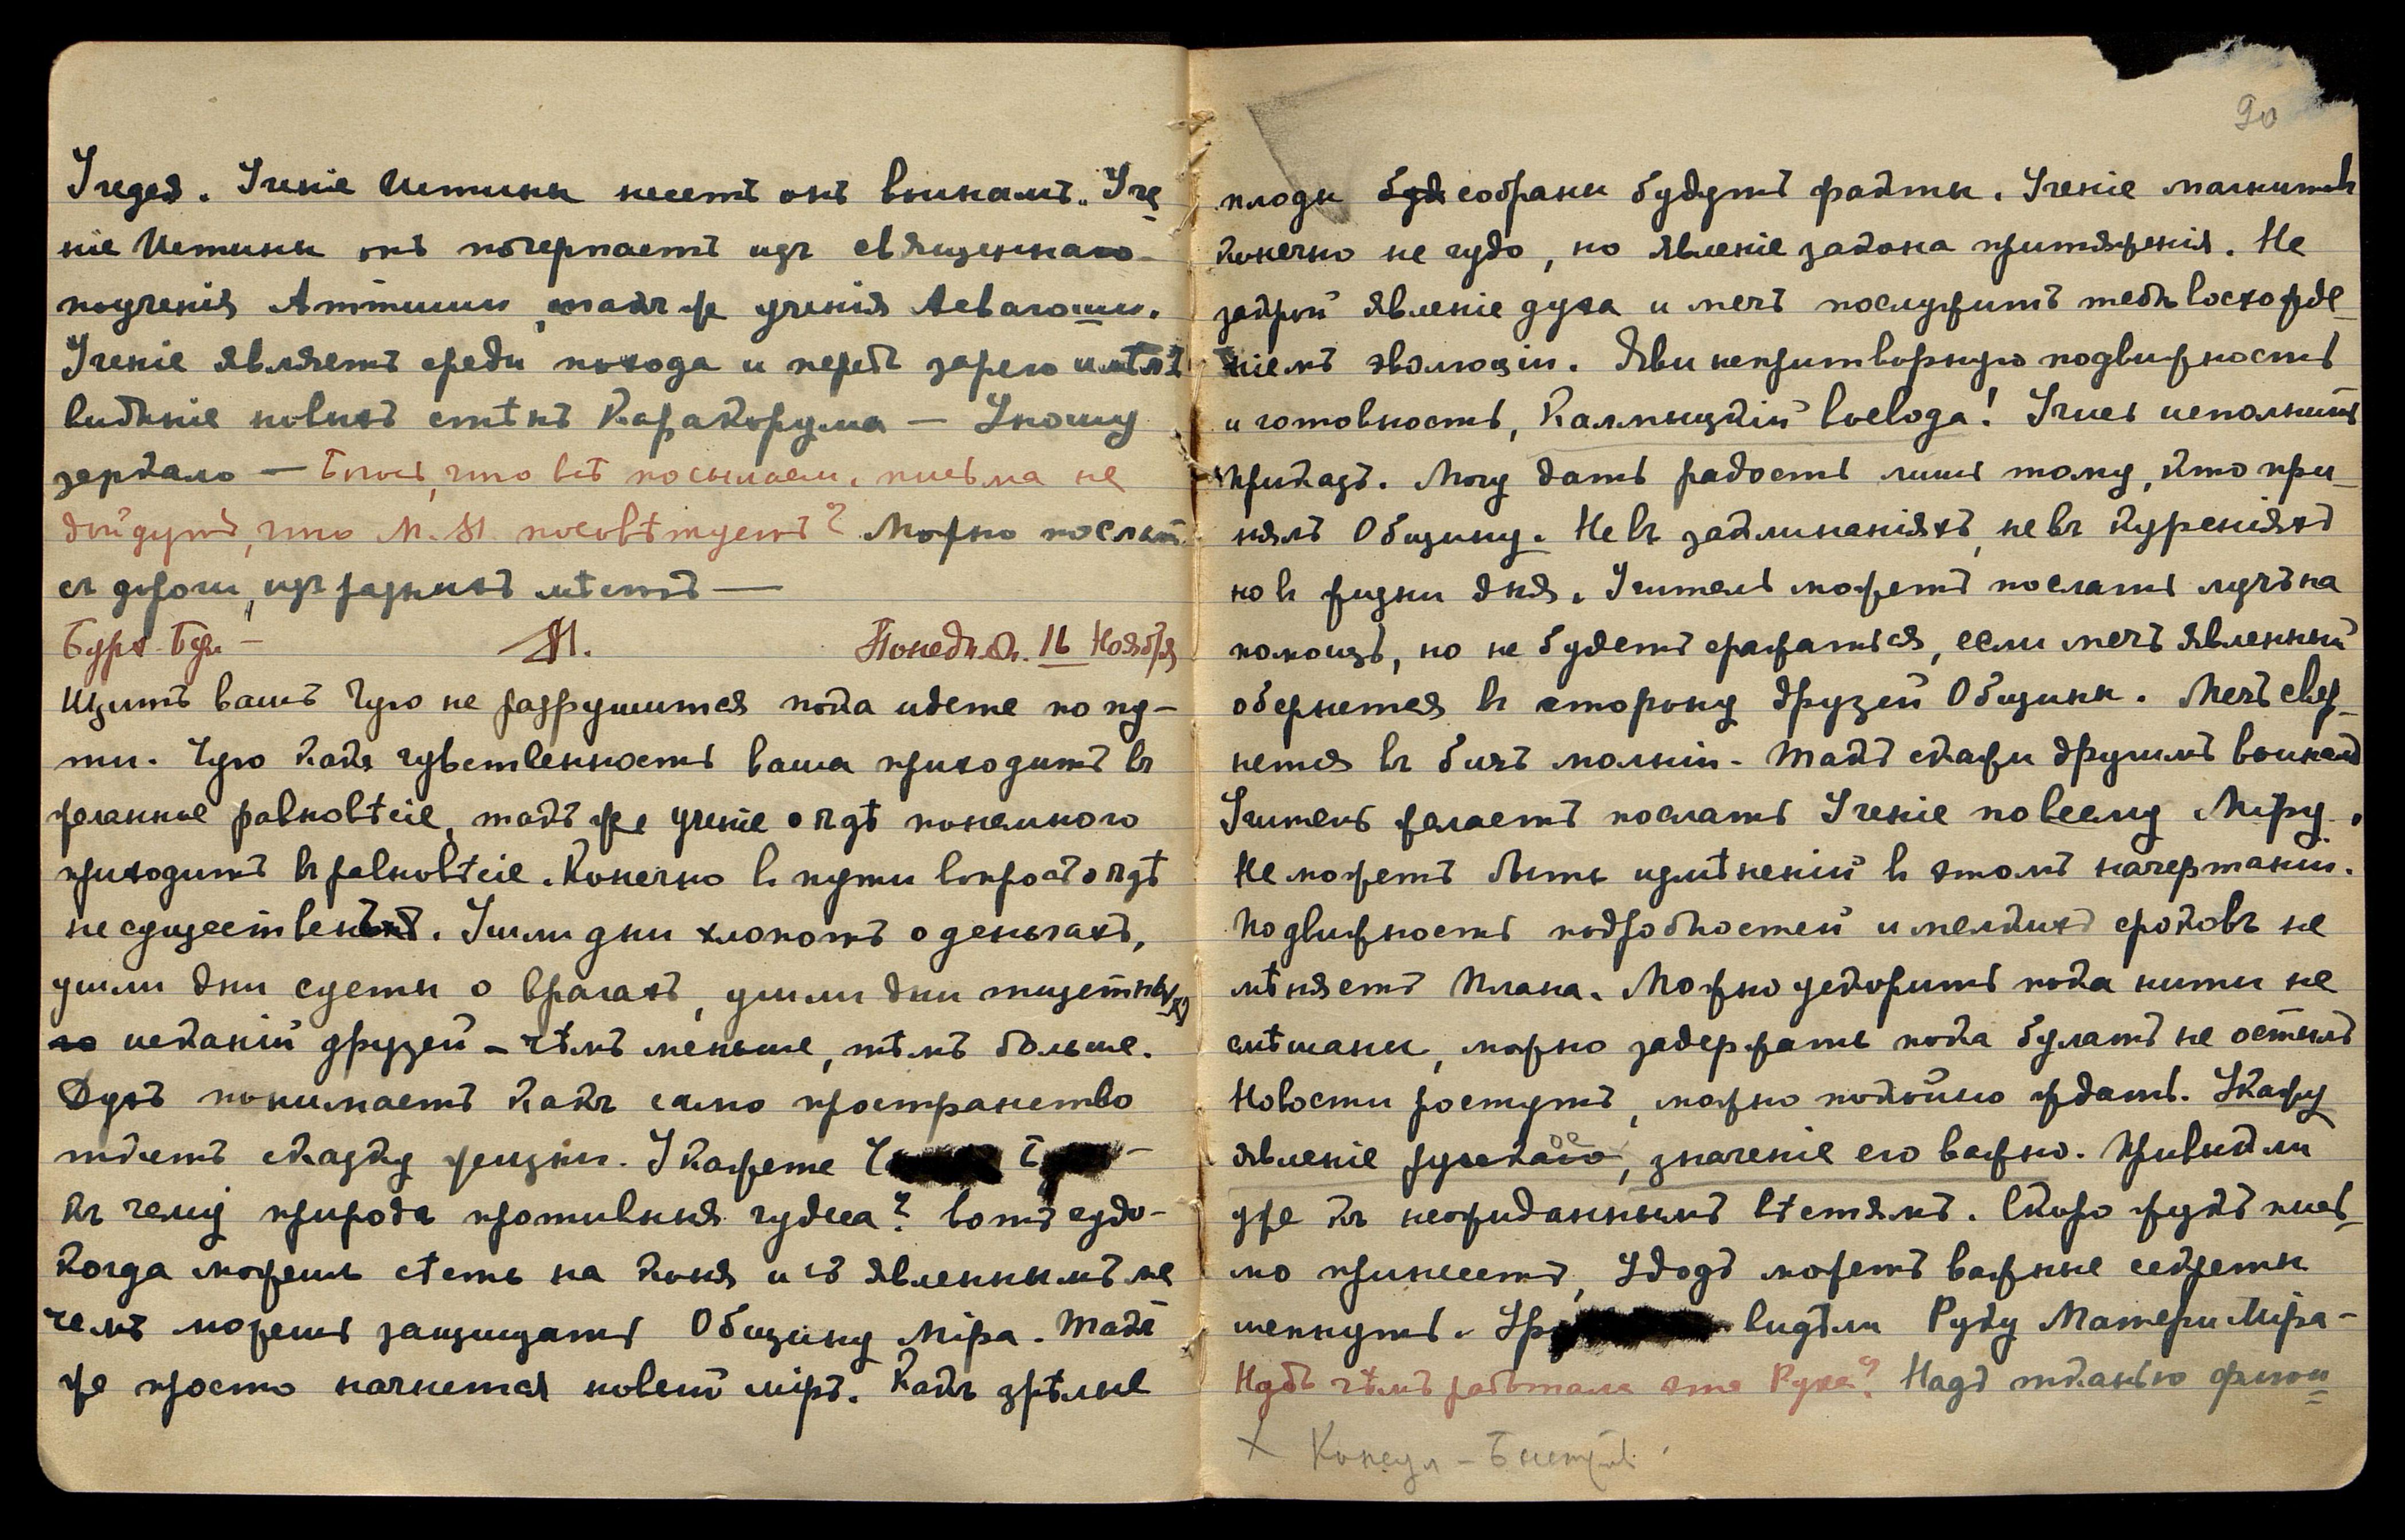 Учедя. Ученіе Истины несетъ онъ воинамъ. Уче
ніе Истины онъ почерпаетъ изъ священнаго
поученія Аттиши, также ученія Асвагоши.
Ученіе являетъ среди похода и передъ зарею имѣлъ
видѣніе новыхъ стѣнъ Каракорума —
зеркало — Боюсь, что всѣ посылаем. письма не
дойдутъ, что М. М. посовѣтуетъ? Можно послать
съ дороги, изъ разныхъ мѣстъ —
М. Понедѣл. 16 Ноября
Щитъ вашъ Чую не разрушится пока идете по пу-
ти. Чую какъ чувственность ваша приходитъ въ
желанное равновѣсіе, такъ же ученіе о ядѣ понемного
приходитъ въ равновѣсіе. Конечно в пути вопросъ о ядѣ
не существенъ. Ушли дни хлопотъ о деньгахъ,
ушли дни суеты о врагахъ, ушли дни тщетныхъ
исканій друзей – чѣмъ меньше, тѣмъ больше.
Духъ понимаетъ какъ само пространство
ткетъ сказку жизни. Укажете
къ чему природа противиться чудеса? Вотъ чудо-
когда можешь сѣсть на коня и съ явленнымъ ме
чемъ можешь защищать Общину Міра. Такъ
же просто начнется новый міръ. Какъ зрѣлые
90
плоды собраны будутъ факты. Ученіе магнитъ
конечно не чудо, но явленіе закона притяженія. Не
закрой явленіе духа и мечъ послужитъ тебѣ восхожде
ніемъ эволюціи. Яви непритворную подвижность
и готовность, Калмыцкій воевода! Учись исполнить
приказъ. Могу дать радость лишь тому, кто при-
нялъ Общину. Не въ заклинаніяхъ, не въ куреніяхъ
но в жизни дня. Учитель можетъ послать лучъ на
помощь, но не будетъ сражаться, если мечъ явленный
обернется в сторону друзей Общины. Мечъ свер-
нется въ бичъ молніи. Такъ скажи другимъ воинамъ
Учитель желаетъ послать Ученіе по всему Міру.
Не можетъ быть измѣненій в этомъ начертаніи.
Подвижность подробностей и мелкихъ сроковъ не
мѣняетъ Плана. Можно ускорить пока нити не
смѣшаны, можно задержать пока булатъ не остылъ
Новости ростутъ, можно покойно ждать. Укажу
явленіе русскаго, значеніе его важно. Привыкли
уже къ неожиданнымъ вѣстямъ. Скоро жукъ пись-
мо принесетъ, Удодъ можетъ важные секреты
шепнуть. видѣли Руку Матери Міра –
Надъ чѣмъ работала эта Рука? Надъ тканью
х Консул – Быстров